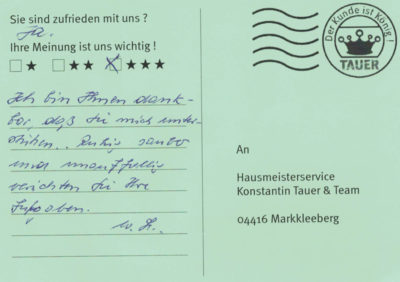 Sie sind zufrieden mit uns ?
ja.
Ihre Meinung ist uns wichtig !
Ich bin Ihnen dank-
bar, daß Sie mich unter-
stützen. Ruhig sauber
und unauffällig
verichten Sie Ihre
Aufgaben.
Der Kunde ist König !
TAUER
An
Hausmeisterservice
Konstantin Tauer & Team
04416 Markkleeberg